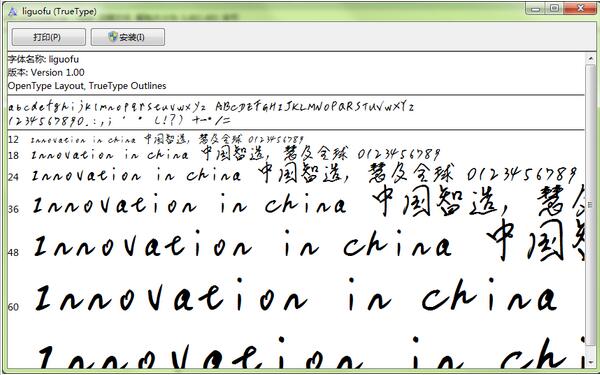 liguofu (TrueType)
打印(P) 安装(I)
字体名称: liguofu
版本: Version 1.00
OpenType Layout, TrueType Outlines
abcdefghijklmnopqrstuvwxyz ABCDEFGHIJKLMNOPQRSTUVWXYZ
1234567890.:,; ' " (!?) +-*/=
12 Innovation in china 中国智造，慧及全球 0123456789
18 Innovation in china 中国智造，慧及全球 0123456789
24 Innovation in china 中国智造，慧及全球 0123456789
36 Innovation in china 中国智造，慧及
48 Innovation in china 中国
60 Innovation in china
Innovation in chi